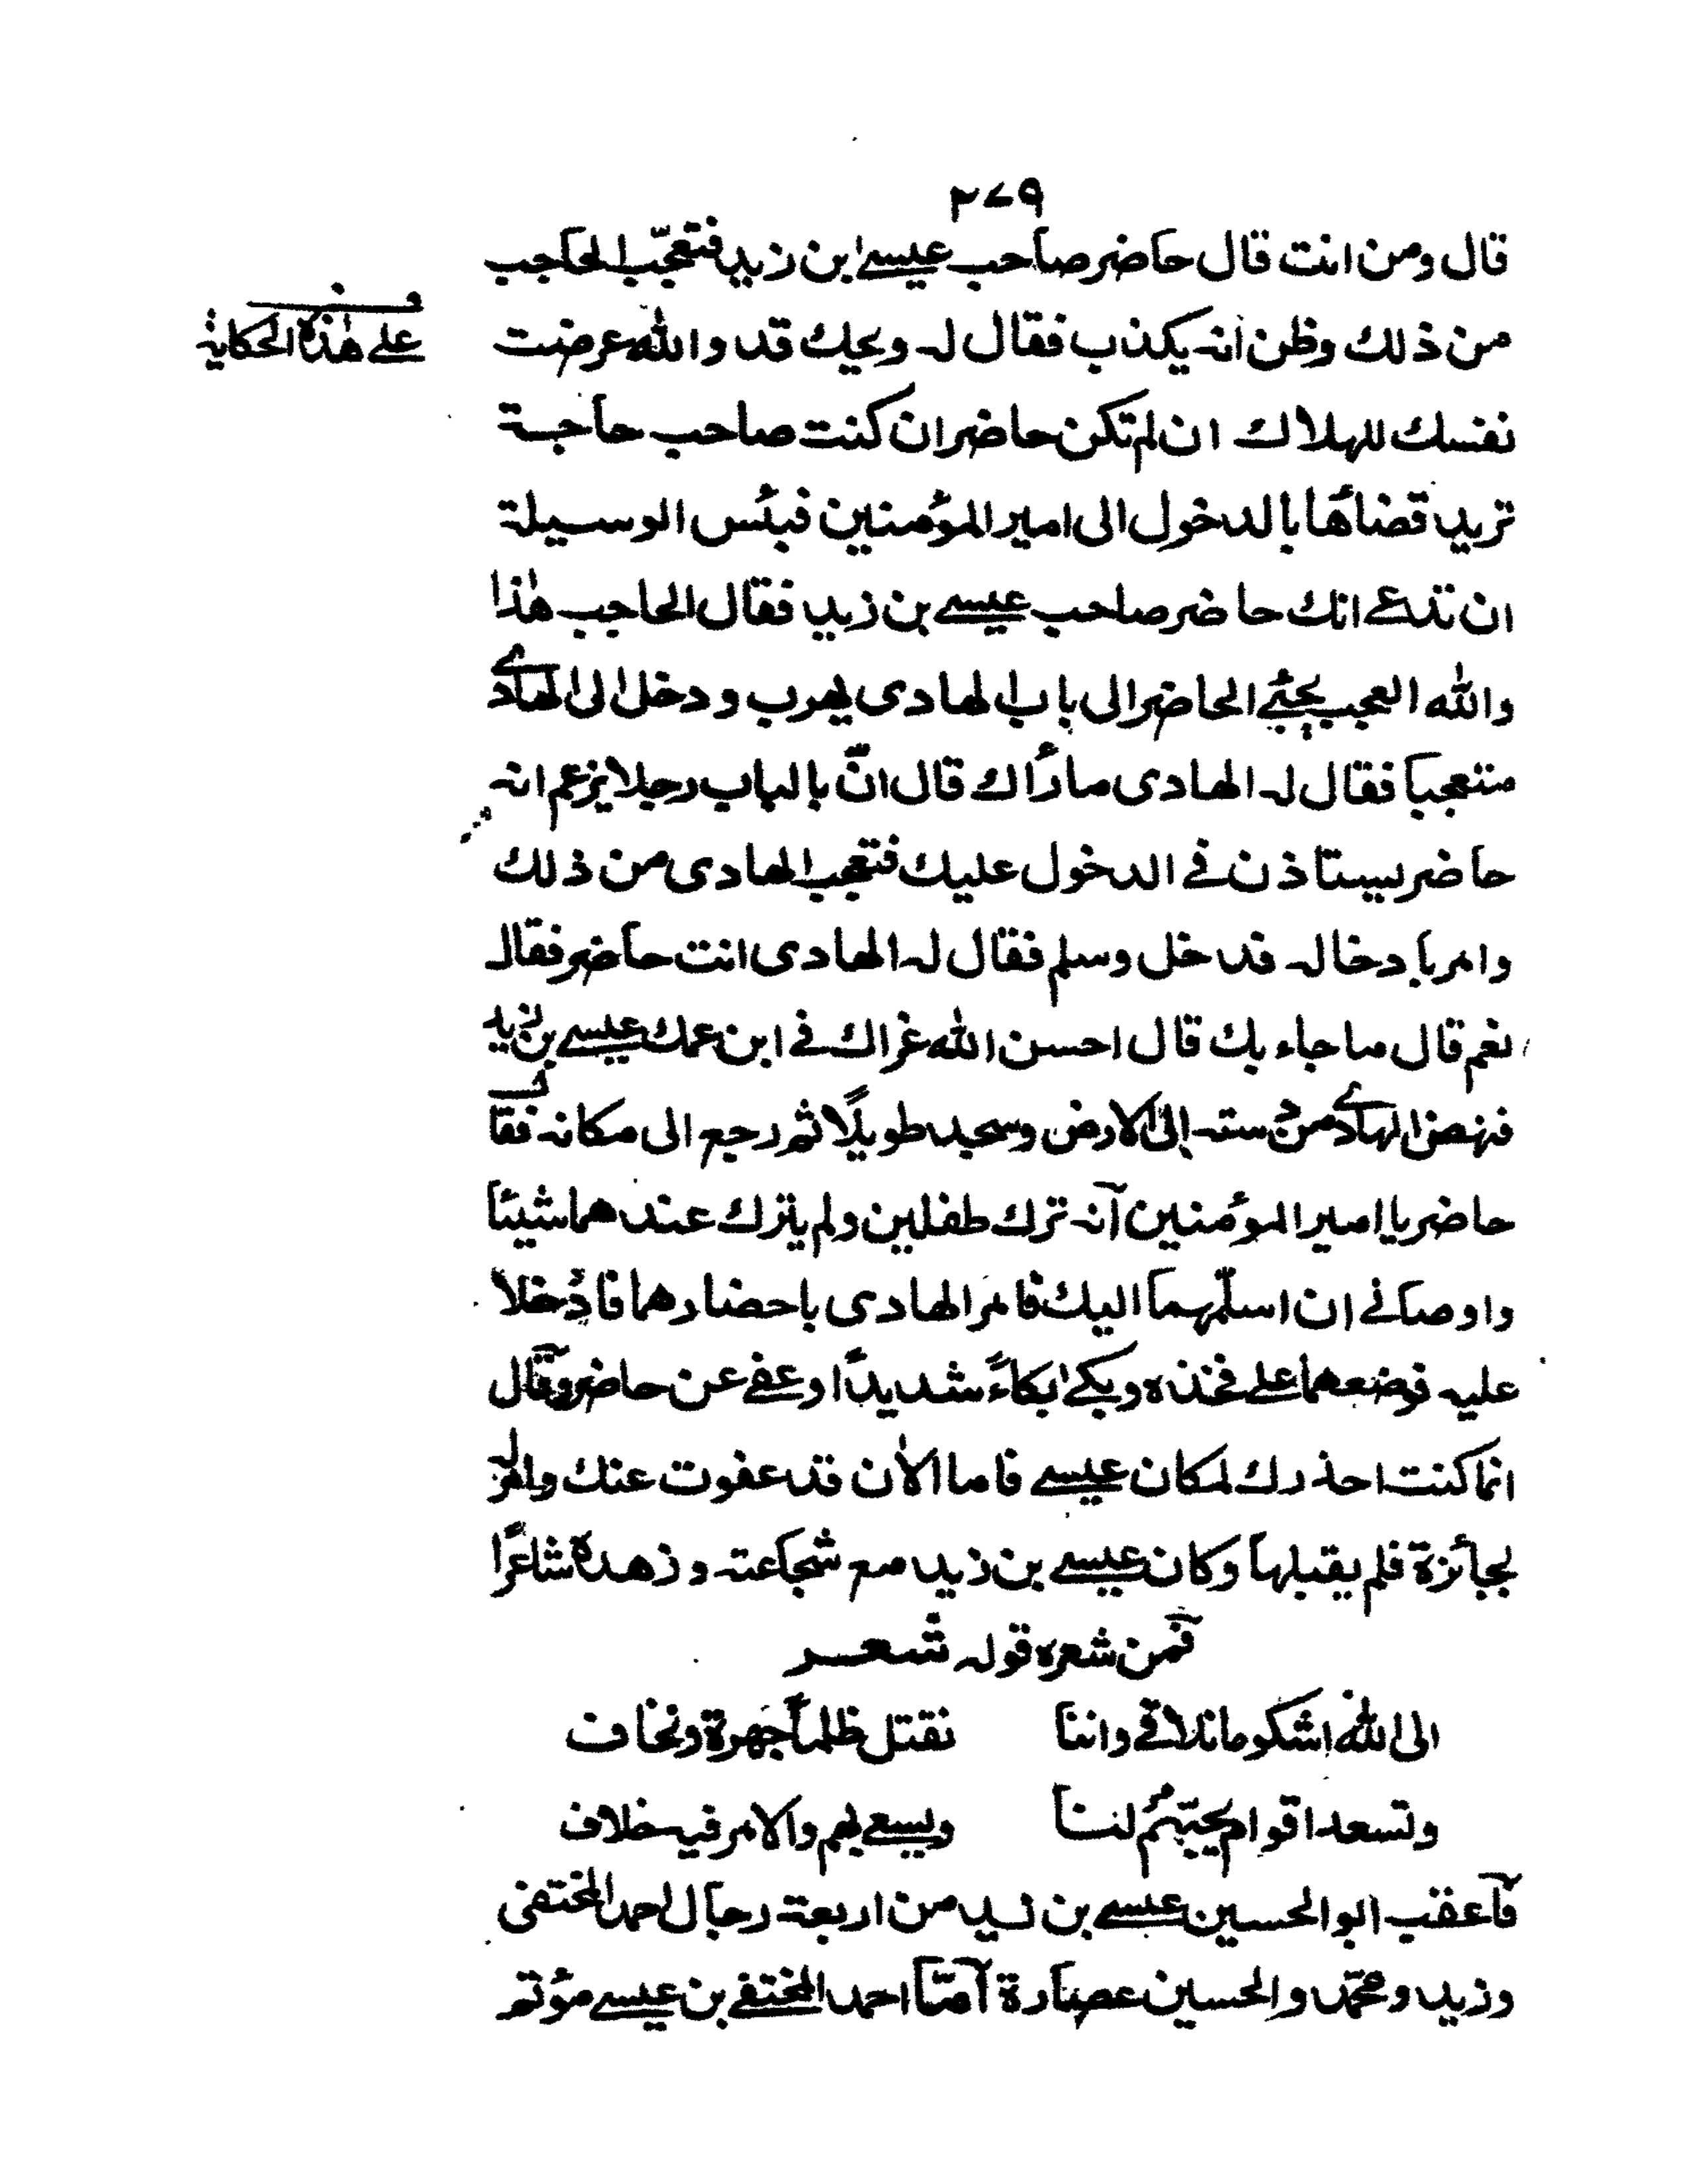 ٢٧٩
قال ومن انت قال حاضر صاحب عيسى بن زيد فتعجّب الحاجب
من ذلك وظن انه يكذب فقال له ويحك قد والله عرضت
قف على هذه الحكاية
نفسك للهلاك ان لم تكن حاضرا ن كنت صاحب حاجة
تريد قضاءها بالدخول الى امير المؤمنين فبئس الوسيلة
ان تدعى انك حاضر صاحب عيسى بن زيد فقال الحاجب هذا
والله العجب يجئ الحاضر الى باب الهادى يهرب و دخل الى الهادى
متعجبا فقال له الهادى ما رأك قال انّ بالباب رجلا يزعم انه
حاضر يستاذن فى الدخول عليك فتعجب الهادى من ذلك
وامر بادخاله فدخل وسلم فقال له الهادى انت حاضر فقال
نعم قال ما جاء بك قال احسن الله عزاك فى ابن عمك عيسى بن زيد
فنهض الهادى من دسته الى الارض وسجد طويلًا ثم رجع الى مكانه فقال
حاضر يا امير المؤمنين انه ترك طفلين ولم يترك عندهما شيئا
واوصانى ان اسلّمهما اليك فامر الهادى باحضارهما فاُدْخلا
عليه فوضعهما على فخذه وبكى بكاءً شديدًا وعفى عن حاضر وقال
انما كنت احذرك لمكان عيسى فاما الان قد عفوت عنك وامر له
بجائزة فلم يقبلها وكان عيسى بن زيد مع شجاعته وزهده شاعرًا
فمن شعره قوله شعر
الى الله اشكو ما نلاقى واننا نقتل ظلماً جهرة ونخاف
وتسعد اقوام بحبّهم لنا ويسعى بهم والامر فيه خلاف
فاعقب ابو الحسين عيسى بن زيد من اربعة رجال احمد المختفى
وزيد ومحمّد والحسين عصارة امّا احمد المختفى بن عيسى مؤتم